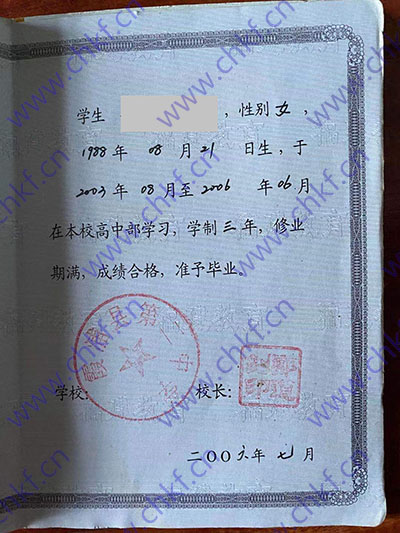 学生 ，性别 女，
1988 年 08 月 21 日生，于
2003 年 08 月至 2006 年 06 月
在本校高中部学习，学制 三 年，修业
期满，成绩合格，准予毕业。
霞浦县第一中学
学校： 校长：
二〇〇六年 七 月
www.chkf.cn